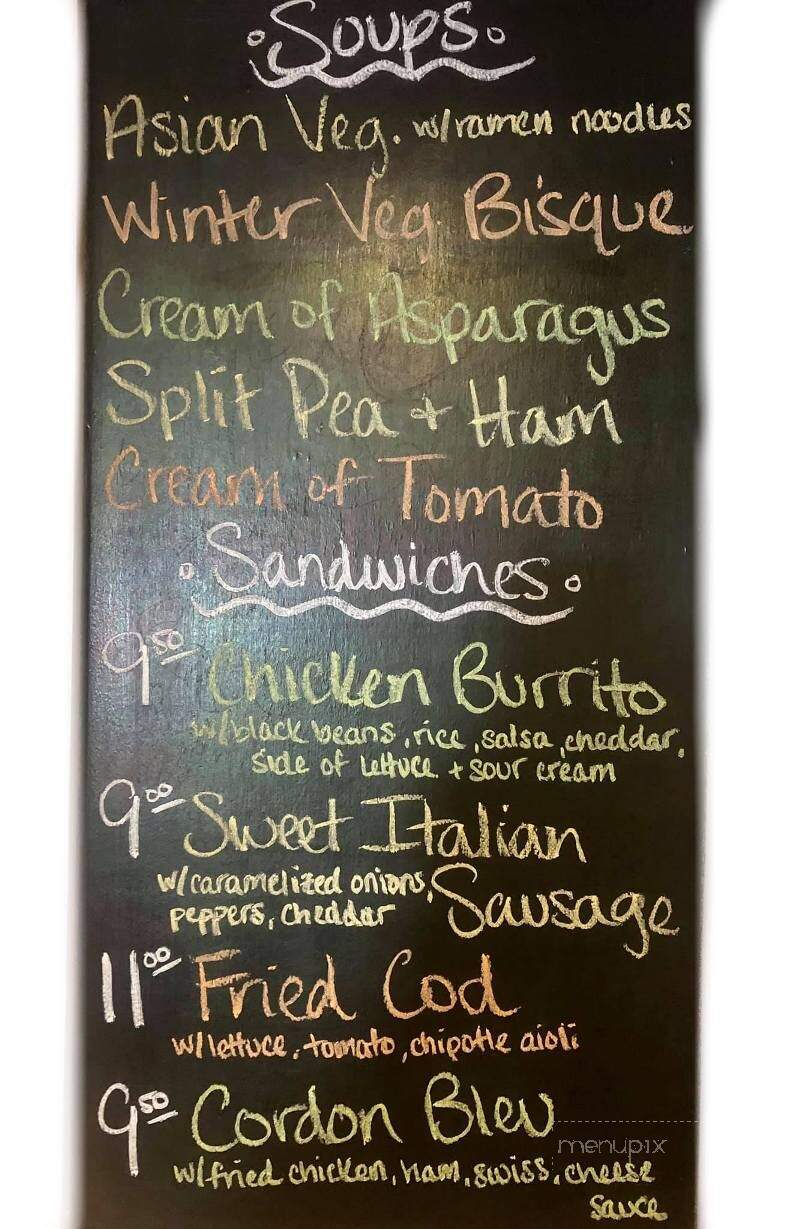 Soups
Asian Veg. w/ramen noodles
Winter Veg Bisque
Cream of Asparagus
Split Pea + Ham
Cream of Tomato
Sandwiches
9.50 Chicken Burrito
w/black beans, rice, salsa, cheddar,
side of lettuce + sour cream
9.00 Sweet Italian
w/caramelized onions, Sausage
peppers, cheddar
11.00 Fried Cod
w/lettuce, tomato, chipotle aioli
9.50 Cordon Bleu
menupix
w/fried chicken, ham, swiss, cheese
sauce